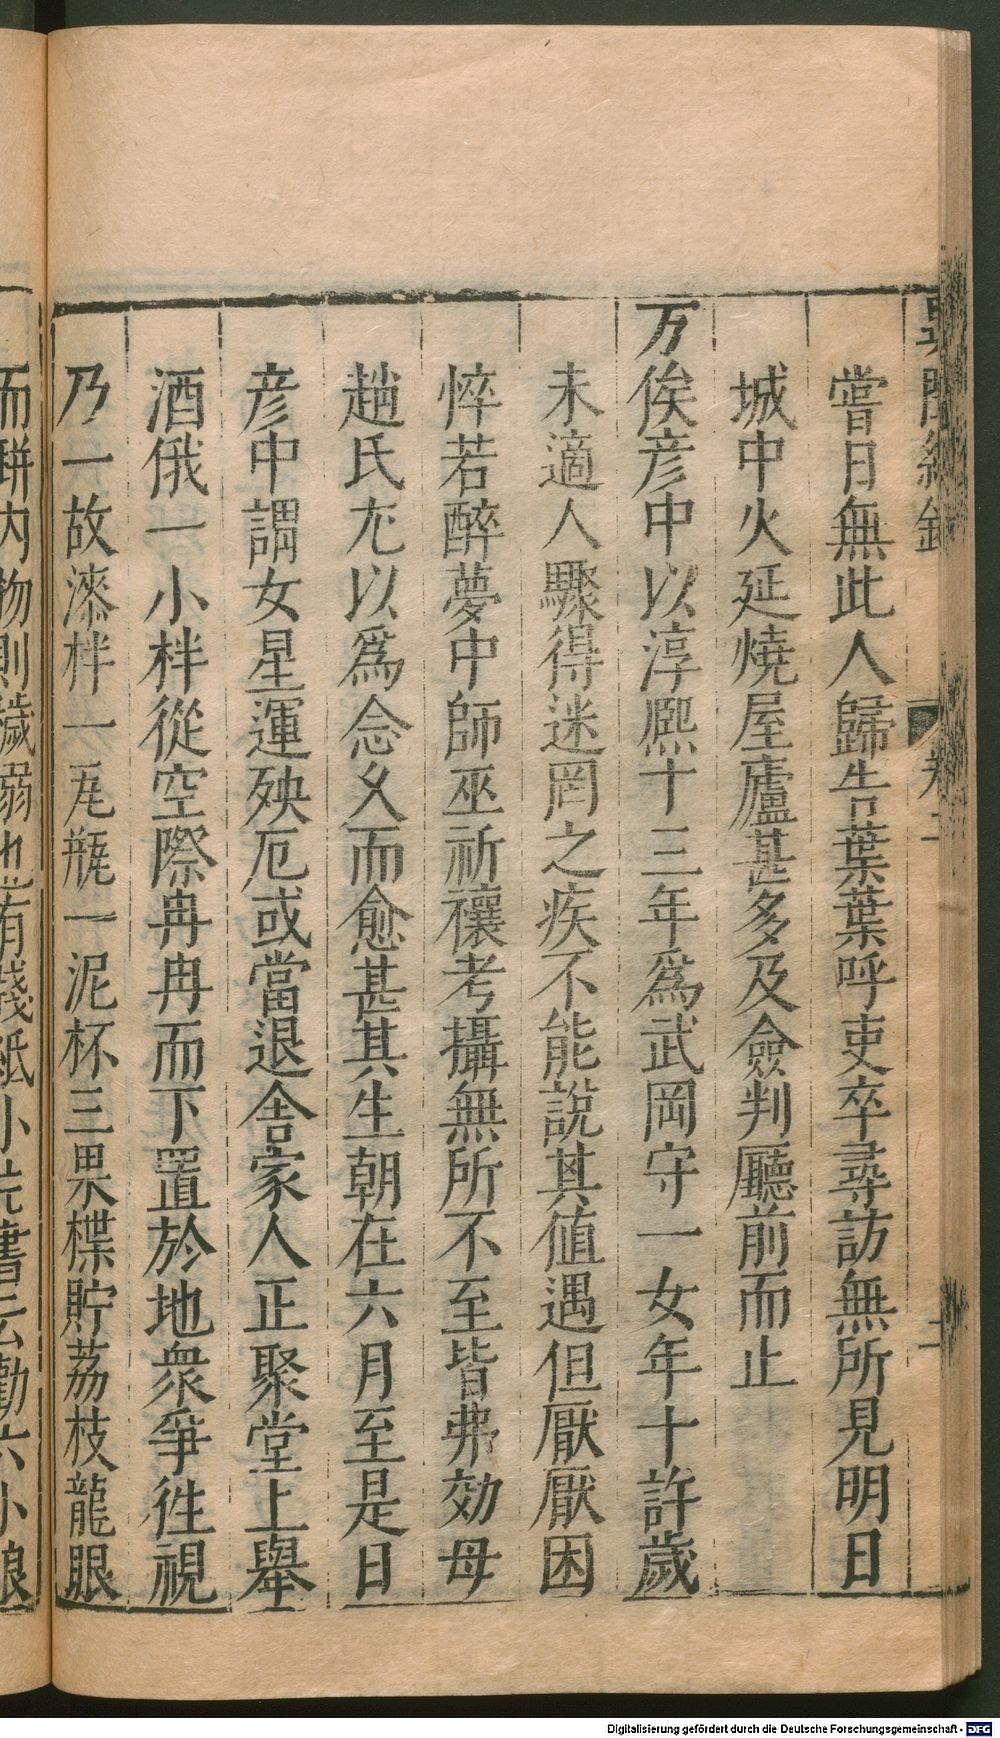 嘗日無此人歸告葉葉呼吏卒尋訪無所見明日
城中火延燒屋廬甚多及僉判廳前而止
万俟彦中以淳熈十三年爲武岡守一女年十許歲
未適人驟得迷罔之疾不能說其值遇但厭厭困
悴若醉夢中師巫祈禳考攝無所不至皆弗効母
趙氏尢以爲念乆而愈甚其生朝在六月至是日
彦中謂女星運殃厄或當退舍家人正聚堂上舉
酒俄一小柈從空際冉冉而下置於地衆爭徃視
乃一故漆柈一瓦瓶一泥杯三果楪貯荔枝龍眼
而缾内物則穢溺也有殘紙小
Digitalisierung gefördert durch die Deutsche Forschungsgemeinschaft - DFG